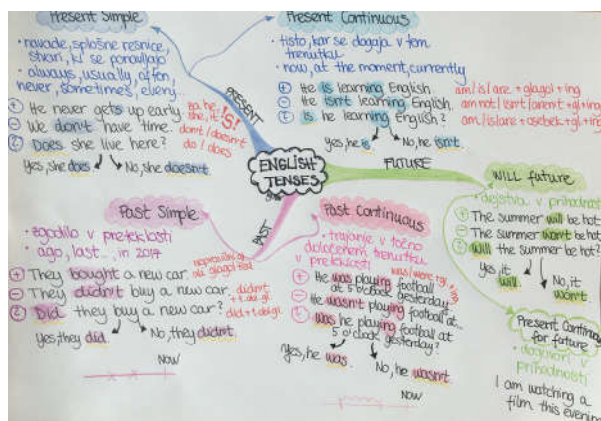 Present Simple
• navade, splošne resnice,
stvari, ki se ponavljajo
• always, usually, often,
never, sometimes, every...
+ He never gets up early
- We don't have time.
? Does she live here?
Yes, she does
No, she doesn't
za he,
she, it
'S!
don't / doesn't
do / does
PRESENT
Present Continuous
• tisto, kar se dogaja v tem
trenutku
• now, at the moment, currently
+ He is learning English.
- He isn't learning English.
? Is he learning English?
Yes, he is
No, he isn't.
am / is / are + glagol + ing
am not / isn't / aren't + gl + ing
am / is / are + osebek + gl + ing
ENGLISH
TENSES
FUTURE
WILL future
• dejstva v prihodnosti
+ The summer will be hot
- The summer won't be hot
? Will the summer be hot?
Yes, it
will
No, it
won't.
Present Continuous
for future
• dogovori v
prihodnosti
I am watching a
film this evening
PAST
Past Simple
• zgodilo v preteklosti
• ago, last... in 2017
+ They bought a new car.
- They didn't buy a new car.
? Did they buy a new car?
Yes, they did.
No, they didn't.
NOW
Past Continuous
• trajanje v točno
določenem trenutku
v preteklosti
was / were + gl + ing
+ He was playing football
at 5 o'clock yesterday.
- He wasn't playing football at...
? Was he playing football at
5 o'clock yesterday?
Yes, he was.
No, he wasn't
NOW